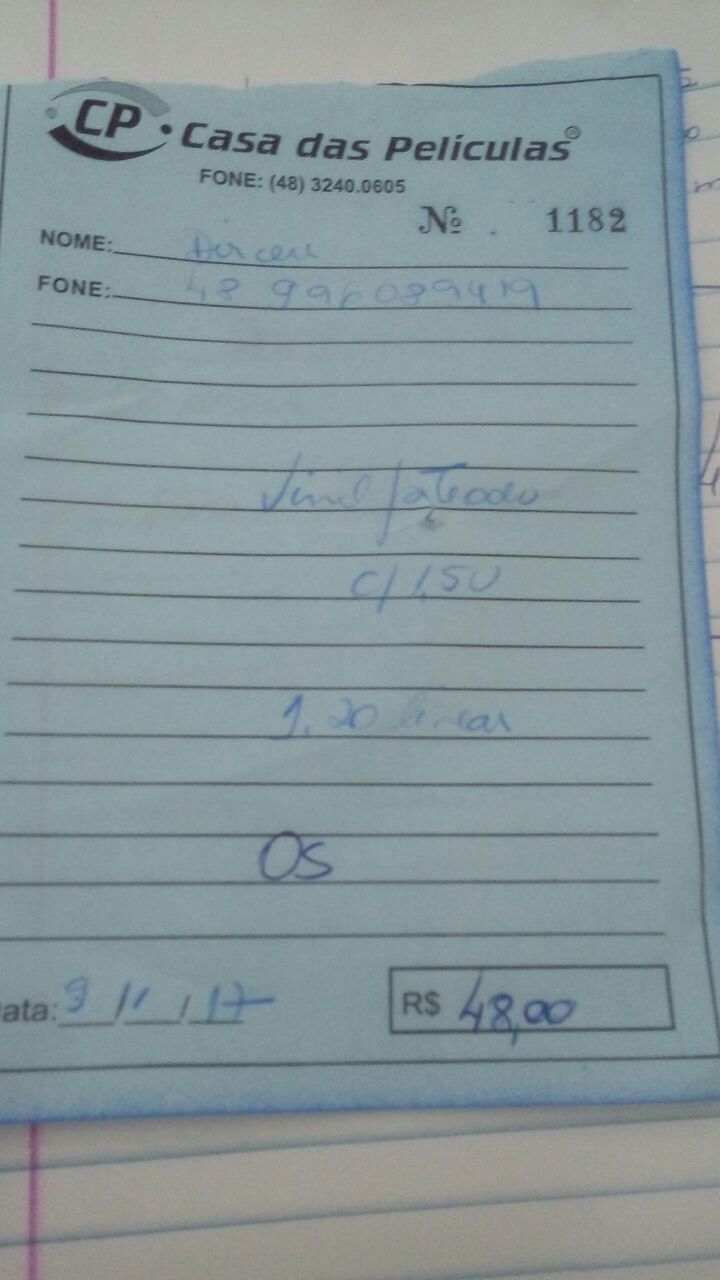 CP. Casa das Películas®
FONE: (48) 3240.0605
Nº. 1182
NOME: Dirceu
FONE: 48 996089419
Vinil Jateado
C/ 1,50
1,20 linear
OS
ata: 9 / 11 / 17
R$ 48,00